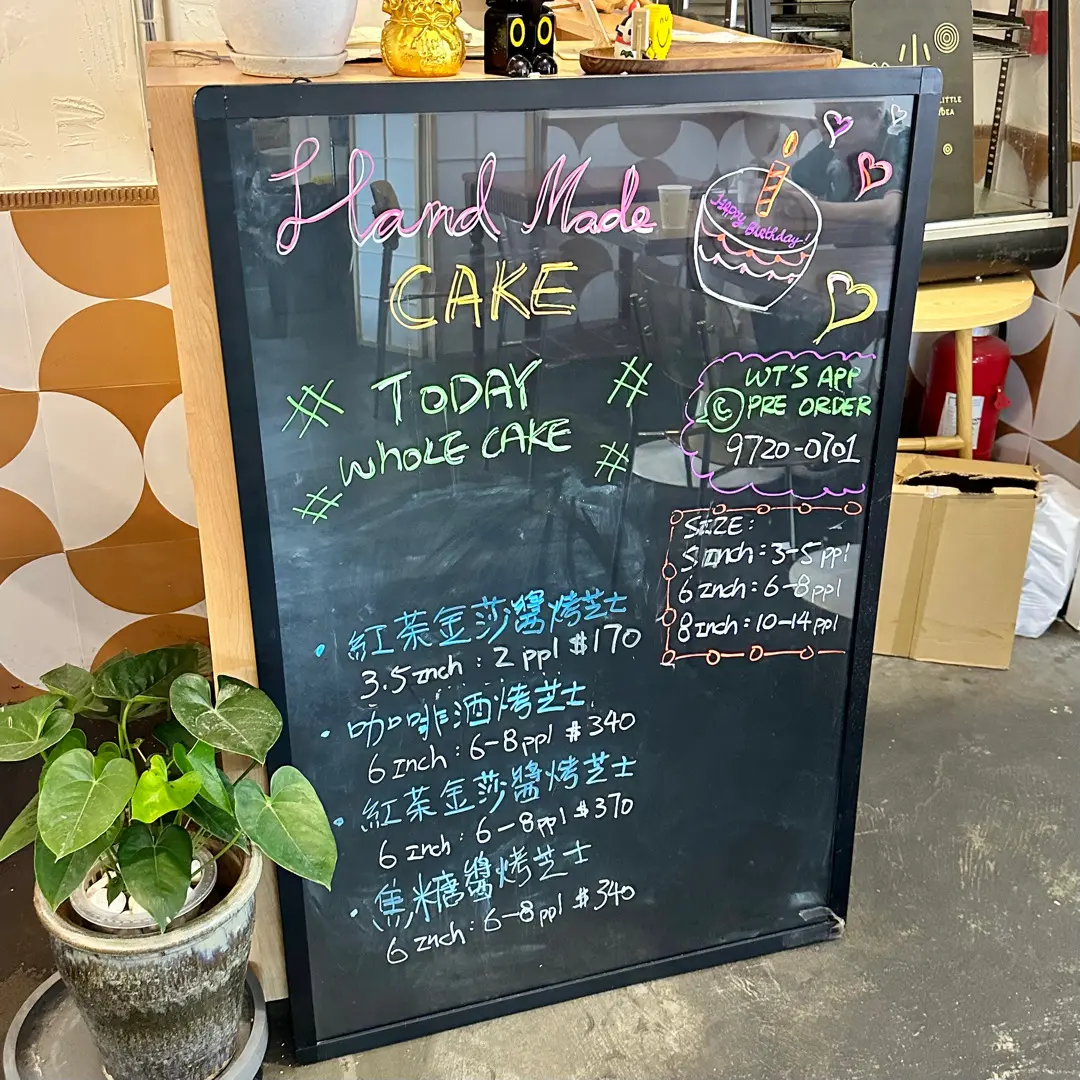 Hand Made
CAKE
Happy Birthday!
TODAY
WHOLE CAKE
WT'S APP
PRE ORDER
9720-0701
SIZE:
5 Inch: 3-5 ppl
6 Inch: 6-8 ppl
8 Inch: 10-14 ppl
• 紅茶金莎醬烤芝士
3.5 Inch: 2 ppl $170
• 咖啡酒烤芝士
6 Inch: 6-8 ppl $340
• 紅茶金莎醬烤芝士
6 Inch: 6-8 ppl $370
• 焦糖醬烤芝士
6 Inch: 6-8 ppl $340
LITTLE
IDEA